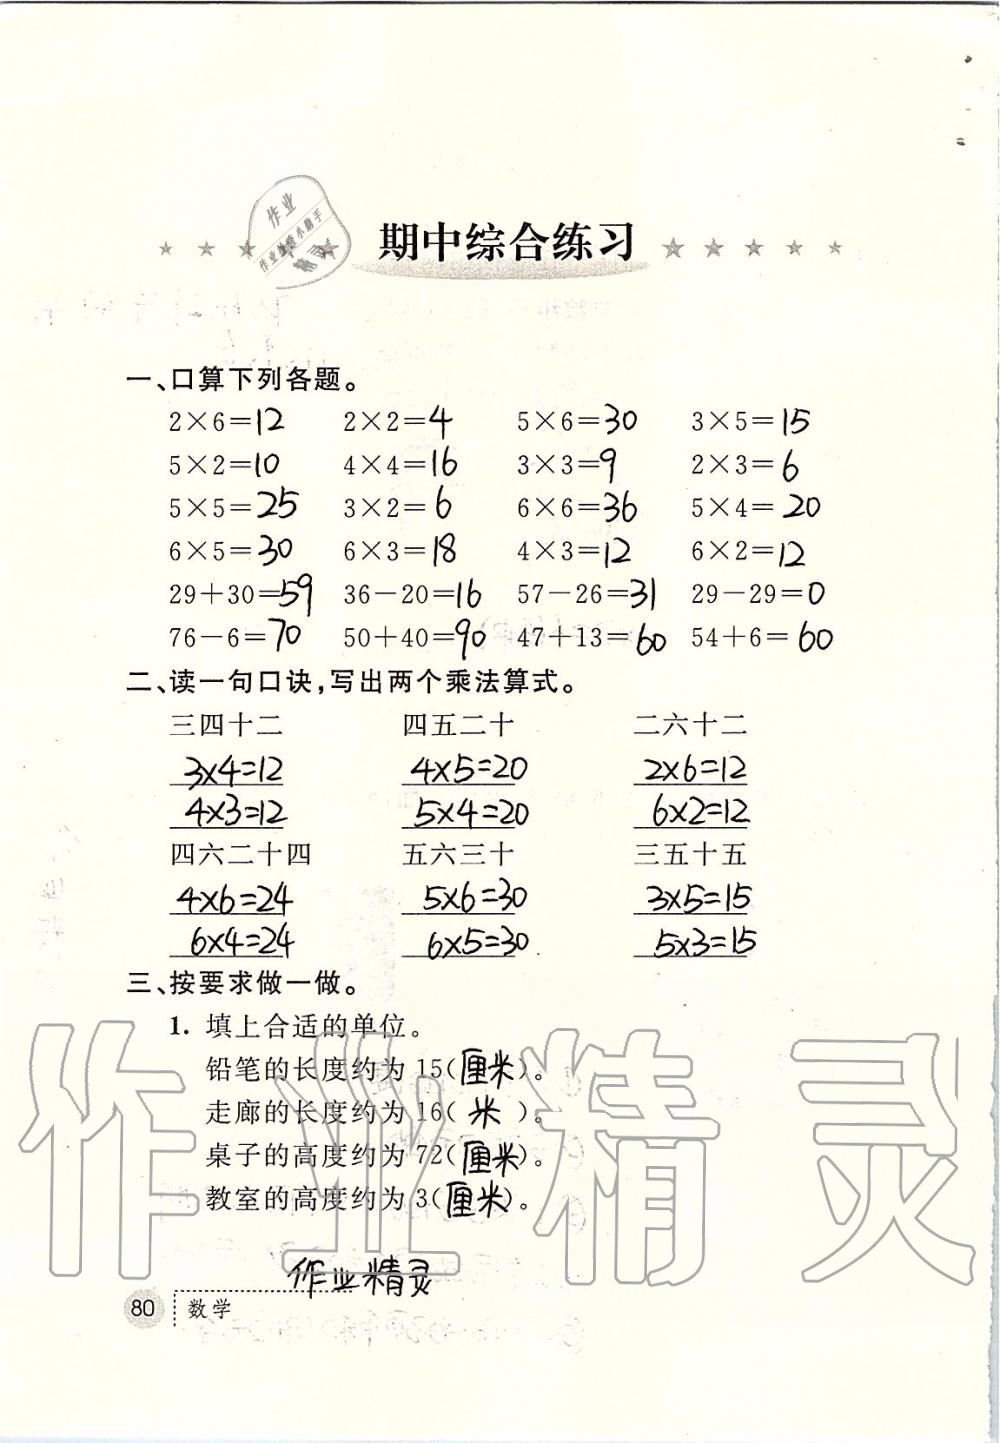 作业
作业检查小助手
精灵
期中综合练习
一、口算下列各题。
2×6=12 2×2=4 5×6=30 3×5=15
5×2=10 4×4=16 3×3=9 2×3=6
5×5=25 3×2=6 6×6=36 5×4=20
6×5=30 6×3=18 4×3=12 6×2=12
29+30=59 36-20=16 57-26=31 29-29=0
76-6=70 50+40=90 47+13=60 54+6=60
二、读一句口诀,写出两个乘法算式。
三四十二 四五二十 二六十二
3×4=12 4×5=20 2×6=12
4×3=12 5×4=20 6×2=12
四六二十四 五六三十 三五十五
4×6=24 5×6=30 3×5=15
6×4=24 6×5=30 5×3=15
三、按要求做一做。
1. 填上合适的单位。
铅笔的长度约为 15(厘米)。
走廊的长度约为 16( 米 )。
桌子的高度约为 72(厘米)。
教室的高度约为 3(厘米)。
作业精灵
作业精灵
80 数学